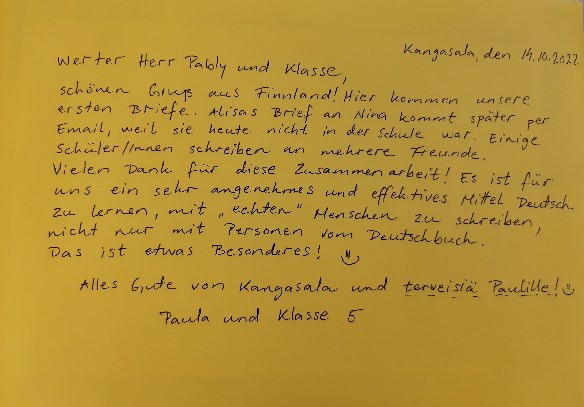 Kangasala, den 14.10.2022
Werter Herr Pably und Klasse,
schönen Gruß aus Finnland! Hier kommen unsere
ersten Briefe. Alisas Brief an Nina kommt später per
Email, weil sie heute nicht in der Schule war. Einige
Schüler/Innen schreiben an mehrere Freunde.
Vielen Dank für diese Zusammenarbeit! Es ist für
uns ein sehr angenehmes und effektives Mittel Deutsch
zu lernen, mit „echten“ Menschen zu schreiben,
nicht nur mit Personen vom Deutschbuch.
Das ist etwas Besonderes!
Alles Gute von Kangasala und terveisiä Paulille!
Paula und Klasse 5